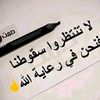 لا تنتظروا سقوطنا
فنحن في رعاية الله